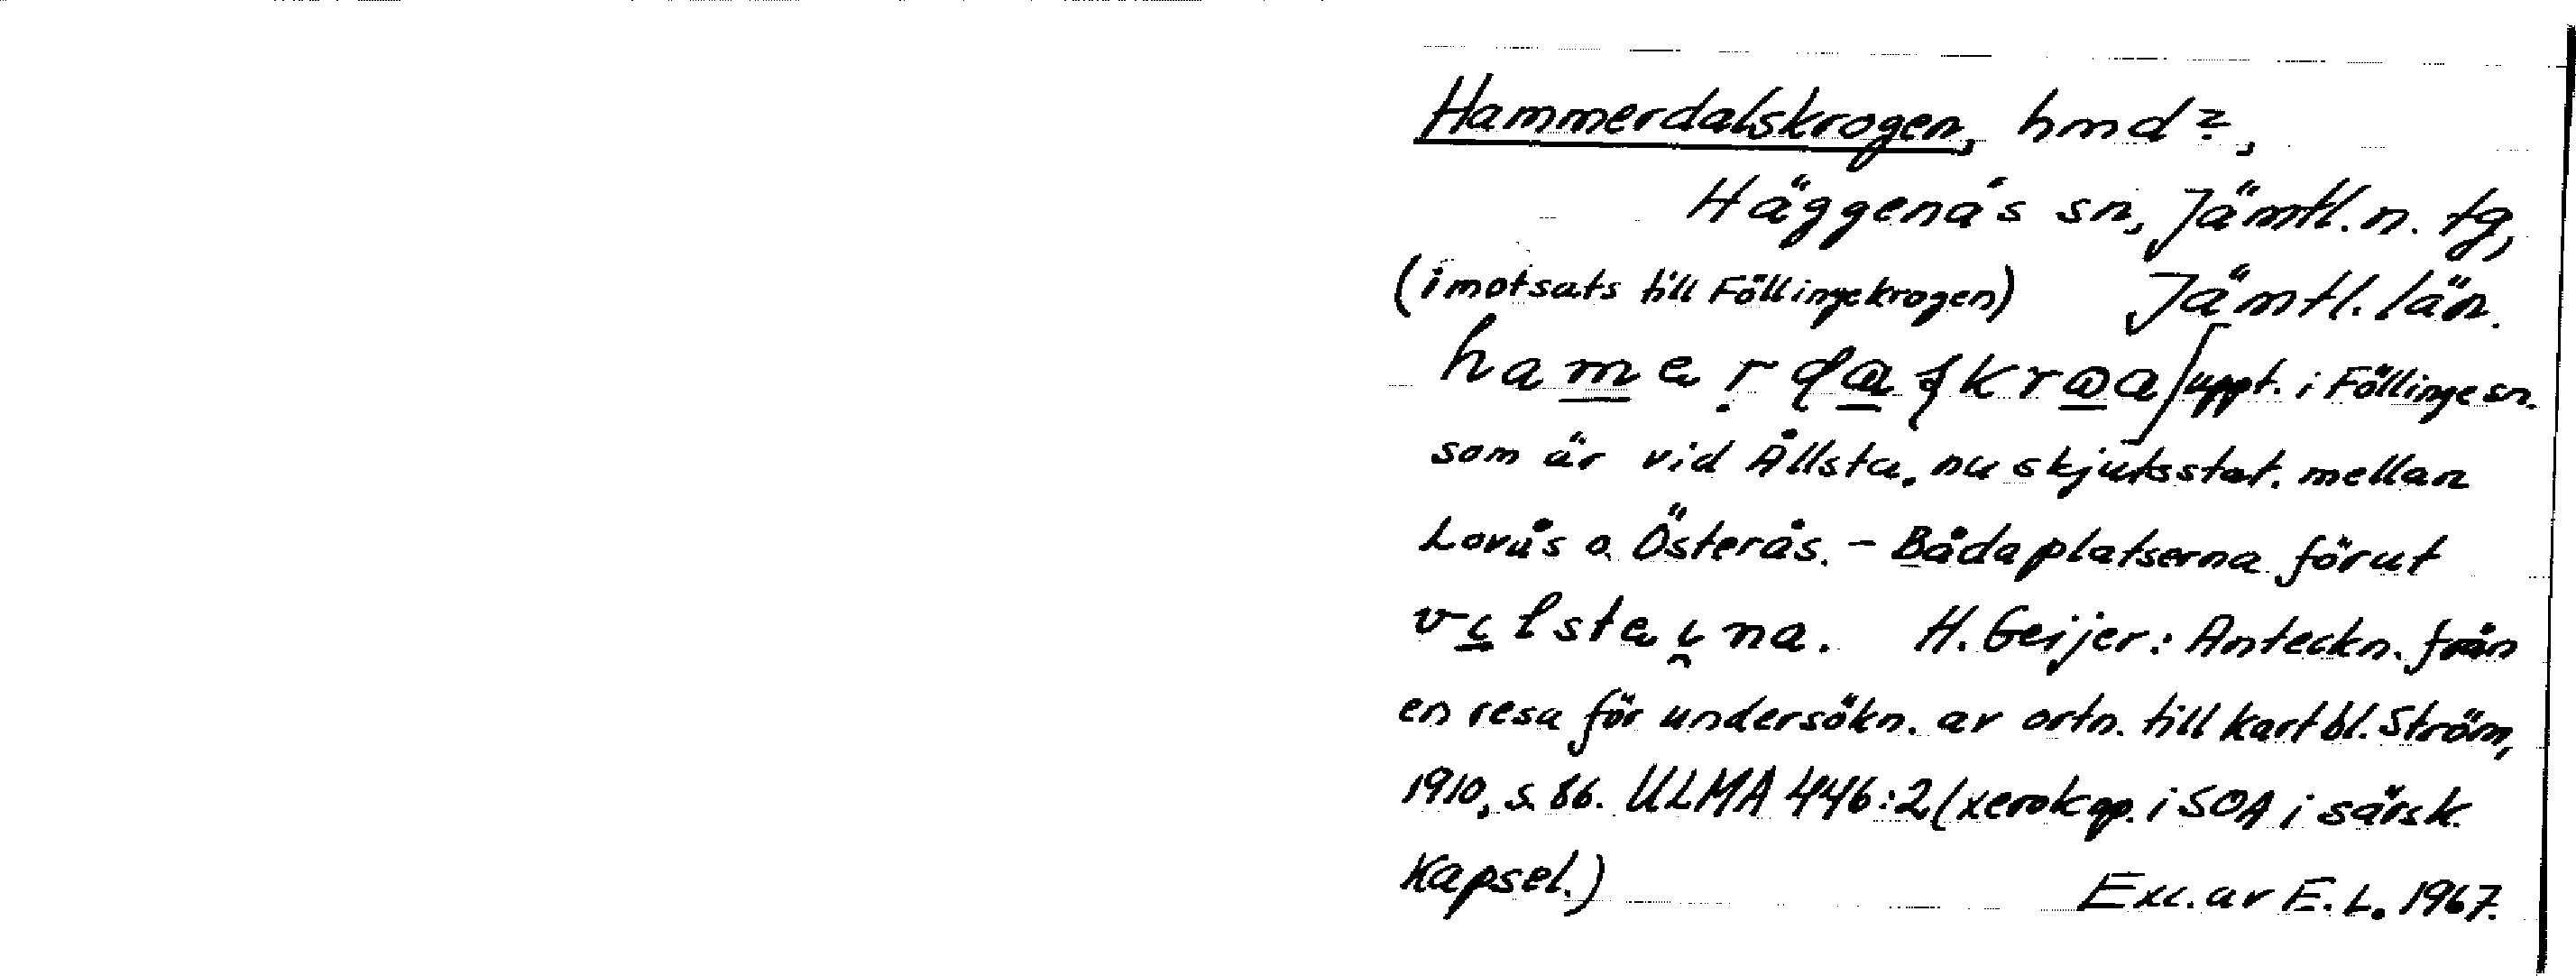 Hammerdalskrogen, hmd?,
Häggenås sn, Jämtl. n. tg,
(i motsats till Föllingekrogen) Jämtl. län.
uppt. i Föllinge sn.
som är vid Ållsta, nu skjutsstat. mellan
Lovås o. Österås. - Båda platserna förut
H. Geijer: Anteckn. från
en resa för undersökn. av ortn. till kartbl. Ström,
1910, s. 86. ULMA 446:2 (xerokop. i SOA i särsk.
kapsel.) Exc. av E. L. 1967.